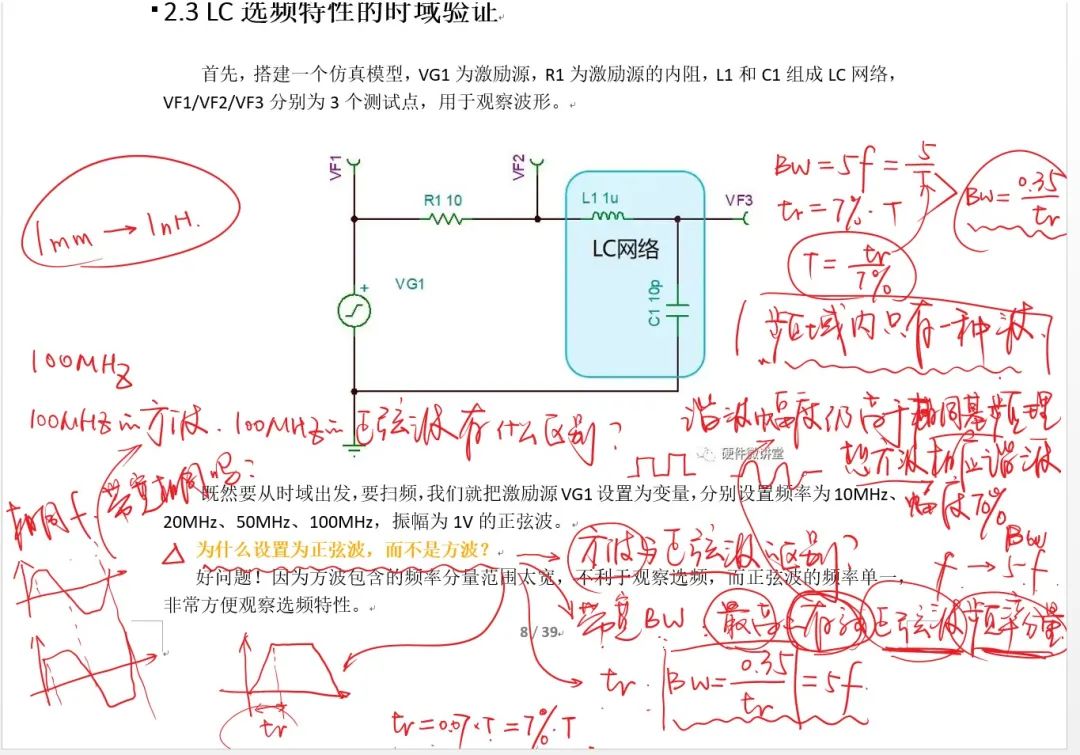 2.3 LC 选频特性的时域验证
首先，搭建一个仿真模型，VG1 为激励源，R1 为激励源的内阻，L1 和 C1 组成 LC 网络，
VF1/VF2/VF3 分别为 3 个测试点，用于观察波形。
VF1
VF2
R1 10
L1 1u
VF3
LC网络
+
VG1
C1 10p
1mm → 1nH.
BW = 5f = 5/T
tr = 7%·T
BW = 0.35/tr
T = tr/7%
频域内只有一种波
100MHz
100MHz的方波. 100MHz的正弦波有什么区别?
谐波幅度仍高于相同基频理
想方波相应谐波
幅度70%
硬件微讲堂
相同f. 带宽相同吗?
既然要从时域出发，要扫频，我们就把激励源 VG1 设置为变量，分别设置频率为 10MHz、
20MHz、50MHz、100MHz，振幅为 1V 的正弦波。
为什么设置为正弦波，而不是方波？
方波与正弦波的区别?
BW
f → 5f
好问题！因为方波包含的频率分量范围太宽，不利于观察选频，而正弦波的频率单一，
非常方便观察选频特性。
8 / 39
带宽BW 最高 有效 正弦波 频率分量
tr. BW = 0.35/tr = 5f
tr
tr = 0.07×T = 7%·T